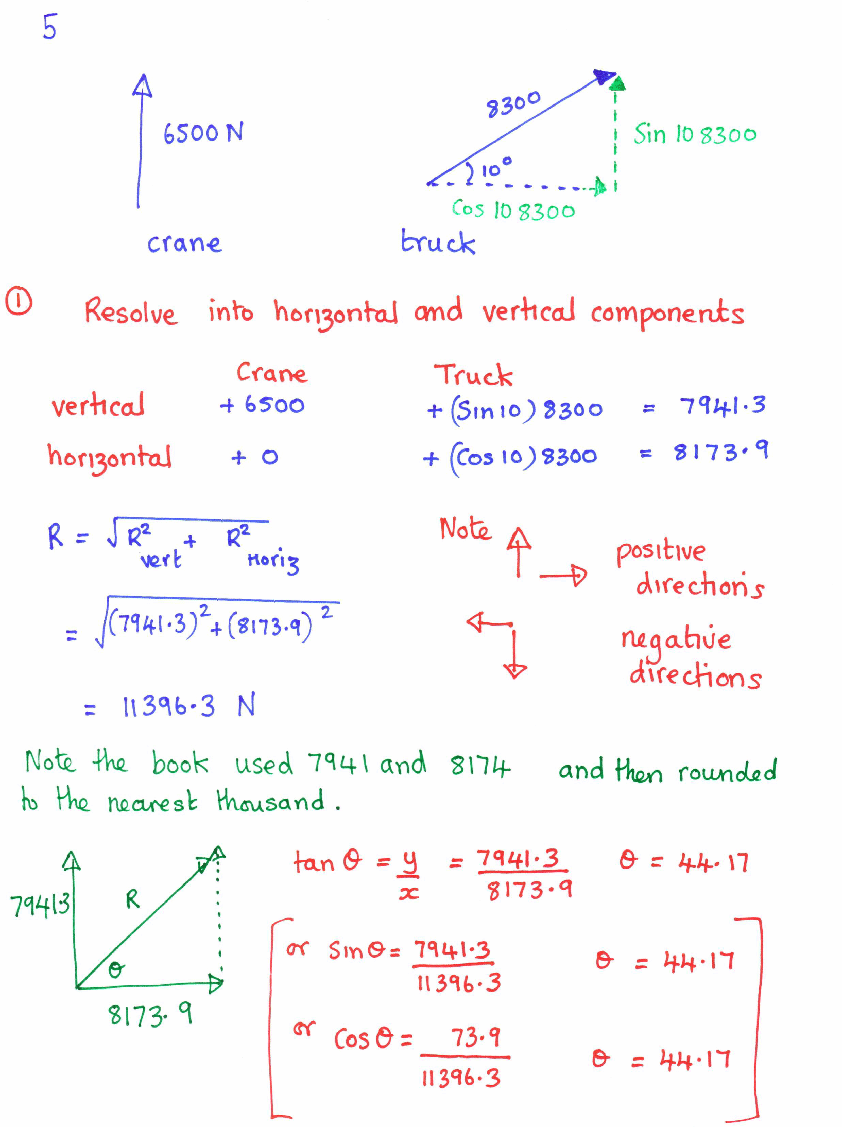 5
6500 N
8300
10°
Sin 10 8300
Cos 10 8300
crane
truck
① Resolve into horizontal and vertical components
Crane Truck
vertical + 6500 + (Sin 10) 8300 = 7941.3
horizontal + 0 + (Cos 10) 8300 = 8173.9
R = √R²vert + R²Horiz
= √(7941.3)² + (8173.9)²
= 11396.3 N
Note
positive
directions
negative
directions
Note the book used 7941 and 8174 and then rounded
to the nearest thousand.
7941.3
R
θ
8173.9
tan θ = y/x = 7941.3/8173.9 θ = 44.17
or Sin θ = 7941.3/11396.3 θ = 44.17
or Cos θ = 73.9/11396.3 θ = 44.17